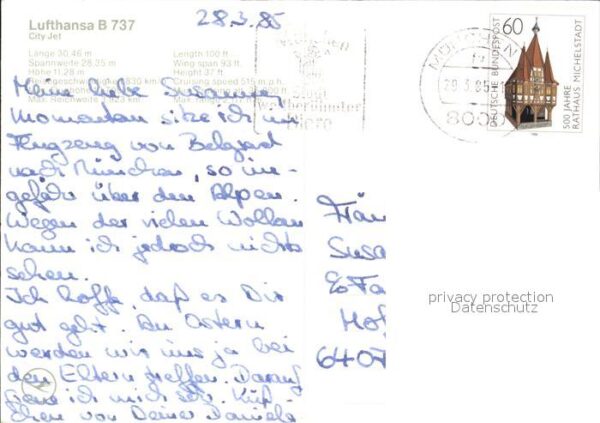 Lufthansa B 737
City Jet
28.3.85
Länge 30,46 m
Spannweite 28,35 m
Höhe 11,28 m
Reisegeschwindigkeit 830 km
Max. Reichweite
Length 100 ft
Wing span 93 ft.
Height 37 ft.
Cruising speed 515 m.p.h.
Max. range
Meine liebe Susanne
Momentan sitze ich im
Flugzeug von Belgrad
nach München, so un-
gefähr über den Alpen.
Wegen der vielen Wolken
kann ich jedoch nichts
sehen.
Ich hoffe, daß es Dir
gut geht. An Ostern
werden wir uns ja bei
den Eltern treffen. Darauf
freue ich mich sehr. Küß-
chen von Deiner Daniela
München
Stadt
weltberühmter
Biere
MÜNCHEN
28.3.85
800
60
DEUTSCHE BUNDESPOST
500 JAHRE
RATHAUS MICHELSTADT
Frau
Susa
Hof
6407
privacy protection
Datenschutz